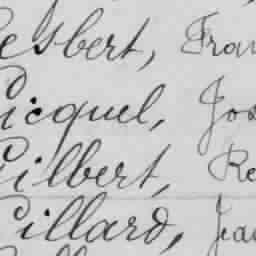 Gesbert, Fran
Gicquel, Jos
Gilbert, Re
Gillard, Jea